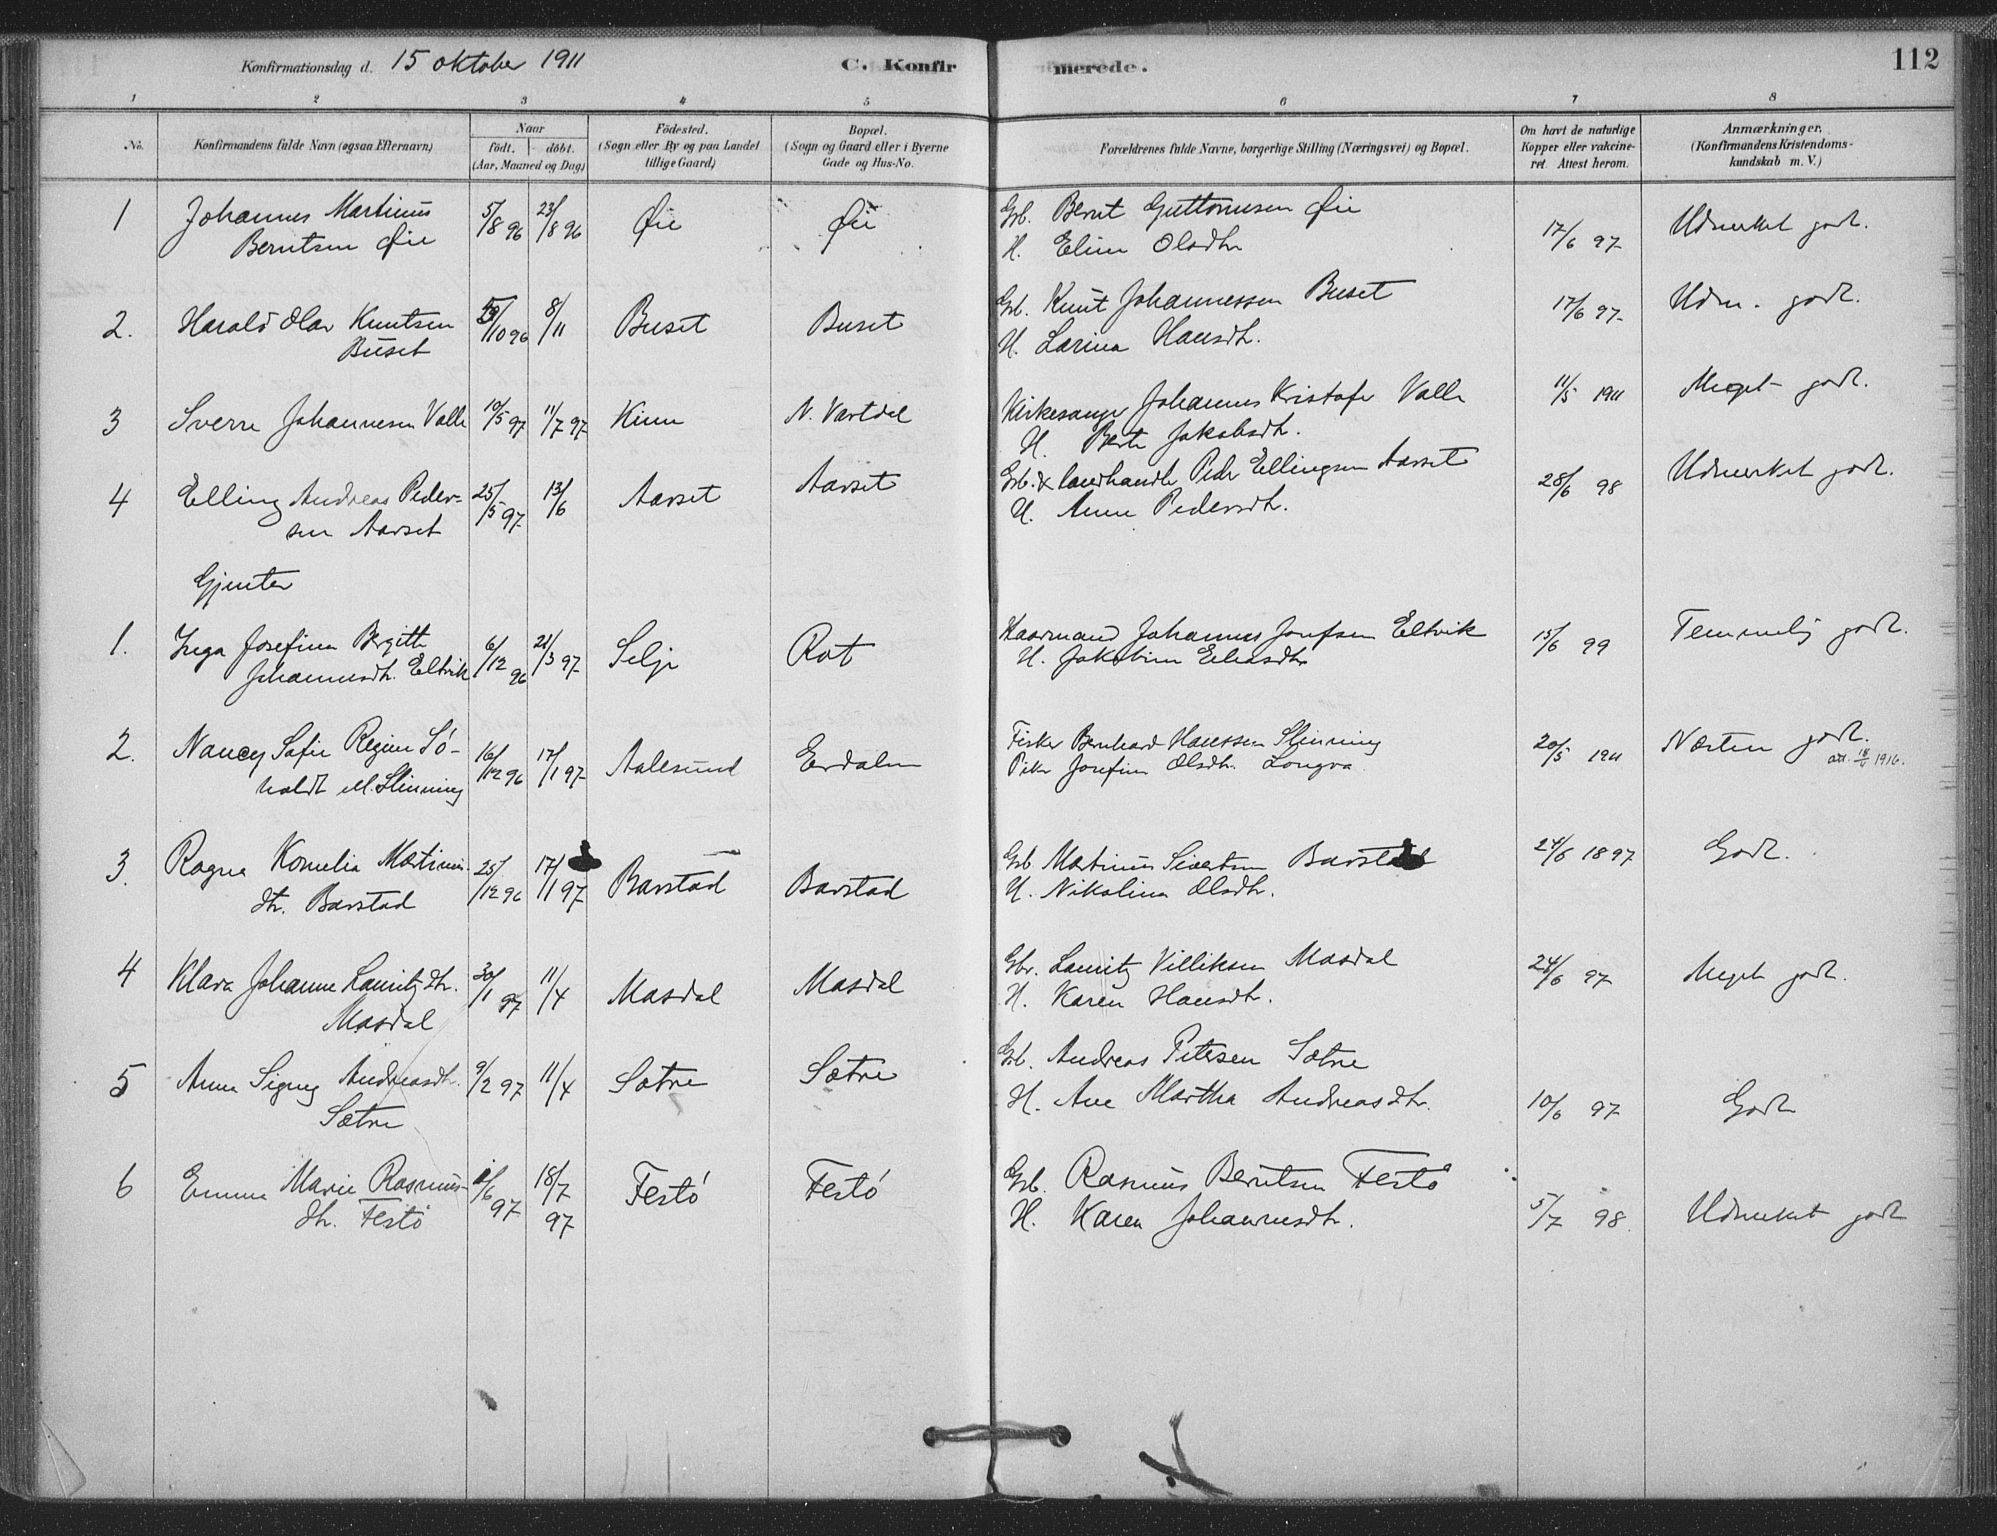 Konfirmationsdag d. 15 oktober 1911
C. Konfirmerede.
112
1 2 3 4 5 6 7 8
No.
Konfirmandens fulde Navn (ogsaa Efternavn)
Naar
födt. döbt.
(Aar, Maaned og Dag)
Födested.
(Sogn eller By og paa Landet
tillige Gaard)
Bopæl.
(Sogn og Gaard eller i Byerne
Gade og Hus-No.
Forældrenes fulde Navne, borgerlige Stilling (Næringsvei) og Bopæl.
Om havt de naturlige
Kopper eller vakcine-
ret. Attest herom.
Anmærkninger.
(Konfirmandens Kristendoms-
kundskab m. V.)
1 Johannes Martinus 5/8 96 23/8 96 Øie Øie Gb. Bernt Guttormsen Øie 17/6 97 Udmerket godt.
Berntsen Øie H. Eline Olsdtr
2. Harald Olav Knutsen /10 96 8/11 Buset Buset Gb. Knut Johannessen Buset 17/6 97 Udm. godt.
Buset H. Larina Hansdtr.
3 Sverre Johannesen Valle 10/5 97 11/7 97 Kinn N. Vartdal Kirkesanger Johannes Kristofer Valle 11/5 1911 Meget godt.
H. Berte Jakobsdtr.
4 Elling Andreas Peder- 25/5 97 13/6 Aarset Aarset Gb. & landhandler Peder Ellingsen Aarset 28/6 98 Udmerket godt.
sen Aarset H. Anne Pedersdtr.
Gjenter
1. Inga Josefina Bergitte 6/12 96 21/3 97 Selje Rot Kaarmand Johannes Josefsen Eltvik 15/6 99 Temmelig godt.
Johannesdtr. Eltvik H. Jakobine Eliasdtr
2. Nancy Sofie Regine Sö- 16/12 96 17/1 97 Aalesund Erdalen Fisker Bernhard Hanssen Slinning 20/5 1911 Næsten godt.
holdt M. Slinning Pike Josefine Olsdtr. Longva att. 1916.
3. Ragna Kornelia Martinus- 25/12 96 17/1 97 Barstad Barstad Gb Martinus Sivertsen Barstad 24/6 1897 Godt.
dtr. Barstad H. Nikolina Olsdtr.
4 Klara Johanne Lauritzdtr. 30/1 97 11/4 Masdal Masdal Gbr. Lauritz Villiksen Masdal 24/6 97 Meget godt.
Masdal H. Karen Hansdtr.
5 Anna Signy Andreasdtr. 9/2 97 11/4 Sætre Sætre Gb. Andreas Petersen Sætre
Sætre H. Ane Martha Andreasdtr. 10/6 97 Godt
6 Emma Marie Rasmus- /6 97 18/7 97 Festö Festö Gb. Rasmus Berntsen Festö
dtr. Festö H. Karen Johannesdtr. 5/7 98. Udmerket godt